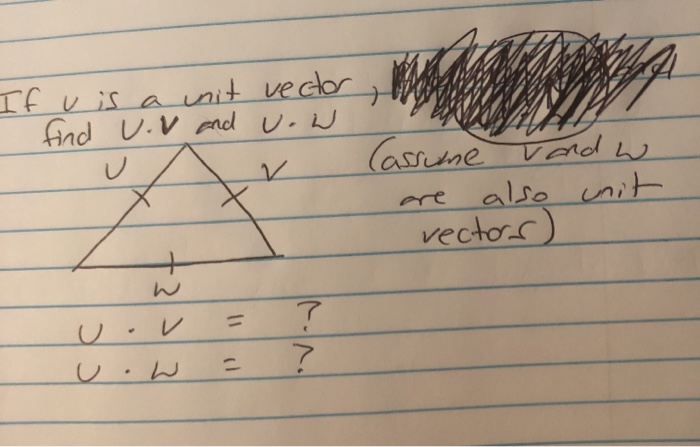 If u is a unit vector,
find u.v and u.w
(assume v and w
are also unit
vectors)
u
v
w
u . v = ?
u . w = ?